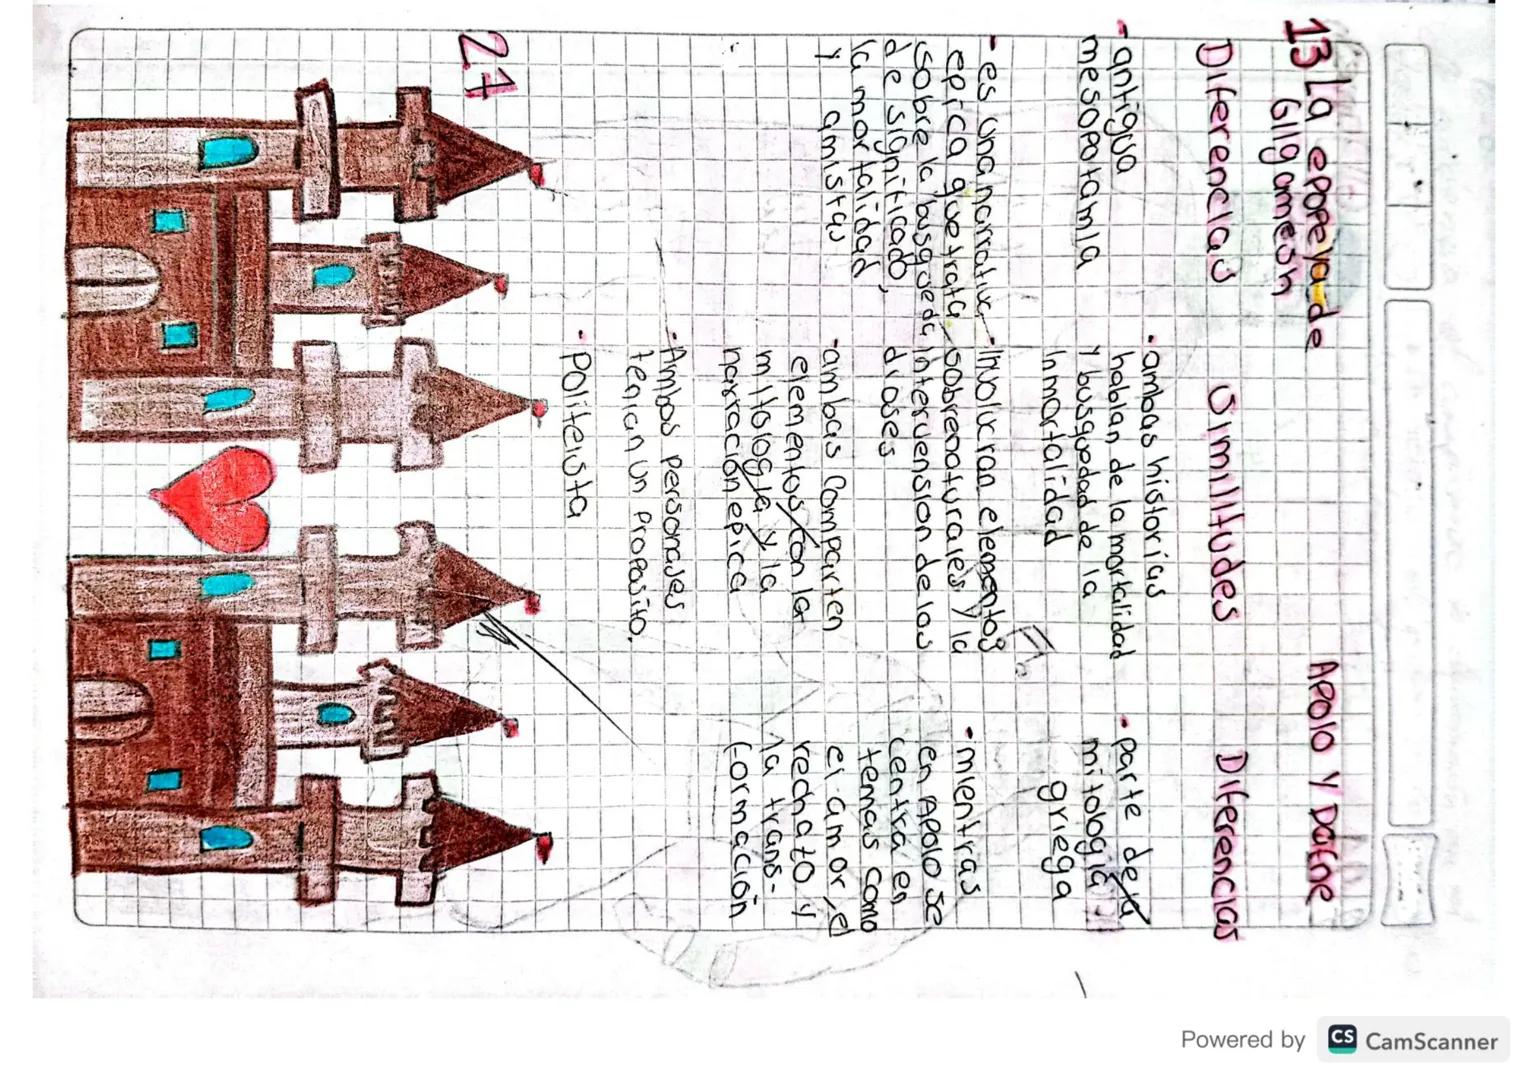 13 La epopeya de
Gilgamesh
Apolo y Dafne
Diferencias
Similitudes
Diferencias
- antigua
mesopotamia
- es una narrativa
epica que trata
sobre la busqueda
de significado,
la mortalidad
y amistas
- ambas historias
hablan de la mortalidad
y busquedad de la
inmortalidad
- Involucran elementos
sobrenaturales y la
intervension de los
dioses
- ambas comparten
elementos con la
mitologia y la
narración epica
- Ambos personajes
tenian un proposito.
- Politeista
- parte de la
mitologia
griega
- mientras
en Apolo se
centra en
temas como
el amor, el
rechazo y
la trans-
formación
27
Powered by CS CamScanner